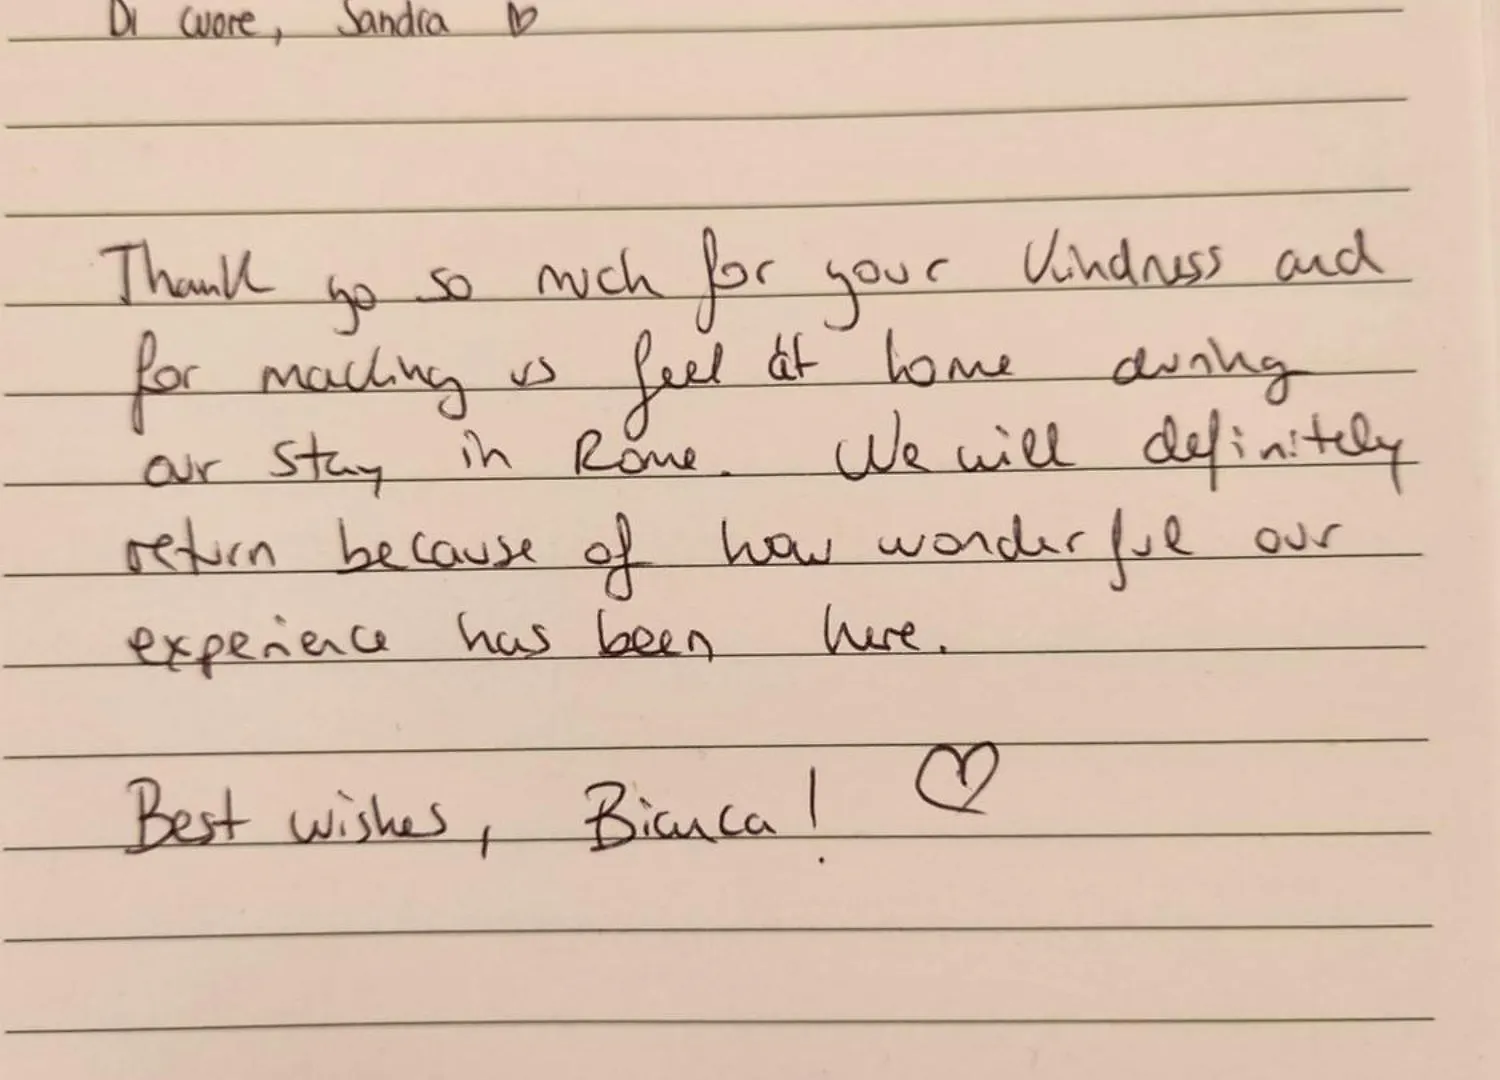 Di cuore, Sandra ♡
Thank yo so much for your kindness and
for macking us feel at home during
our stay in Rome. We will definitely
return because of how wonderful our
experience has been here.
Best wishes, Bianca! ♡